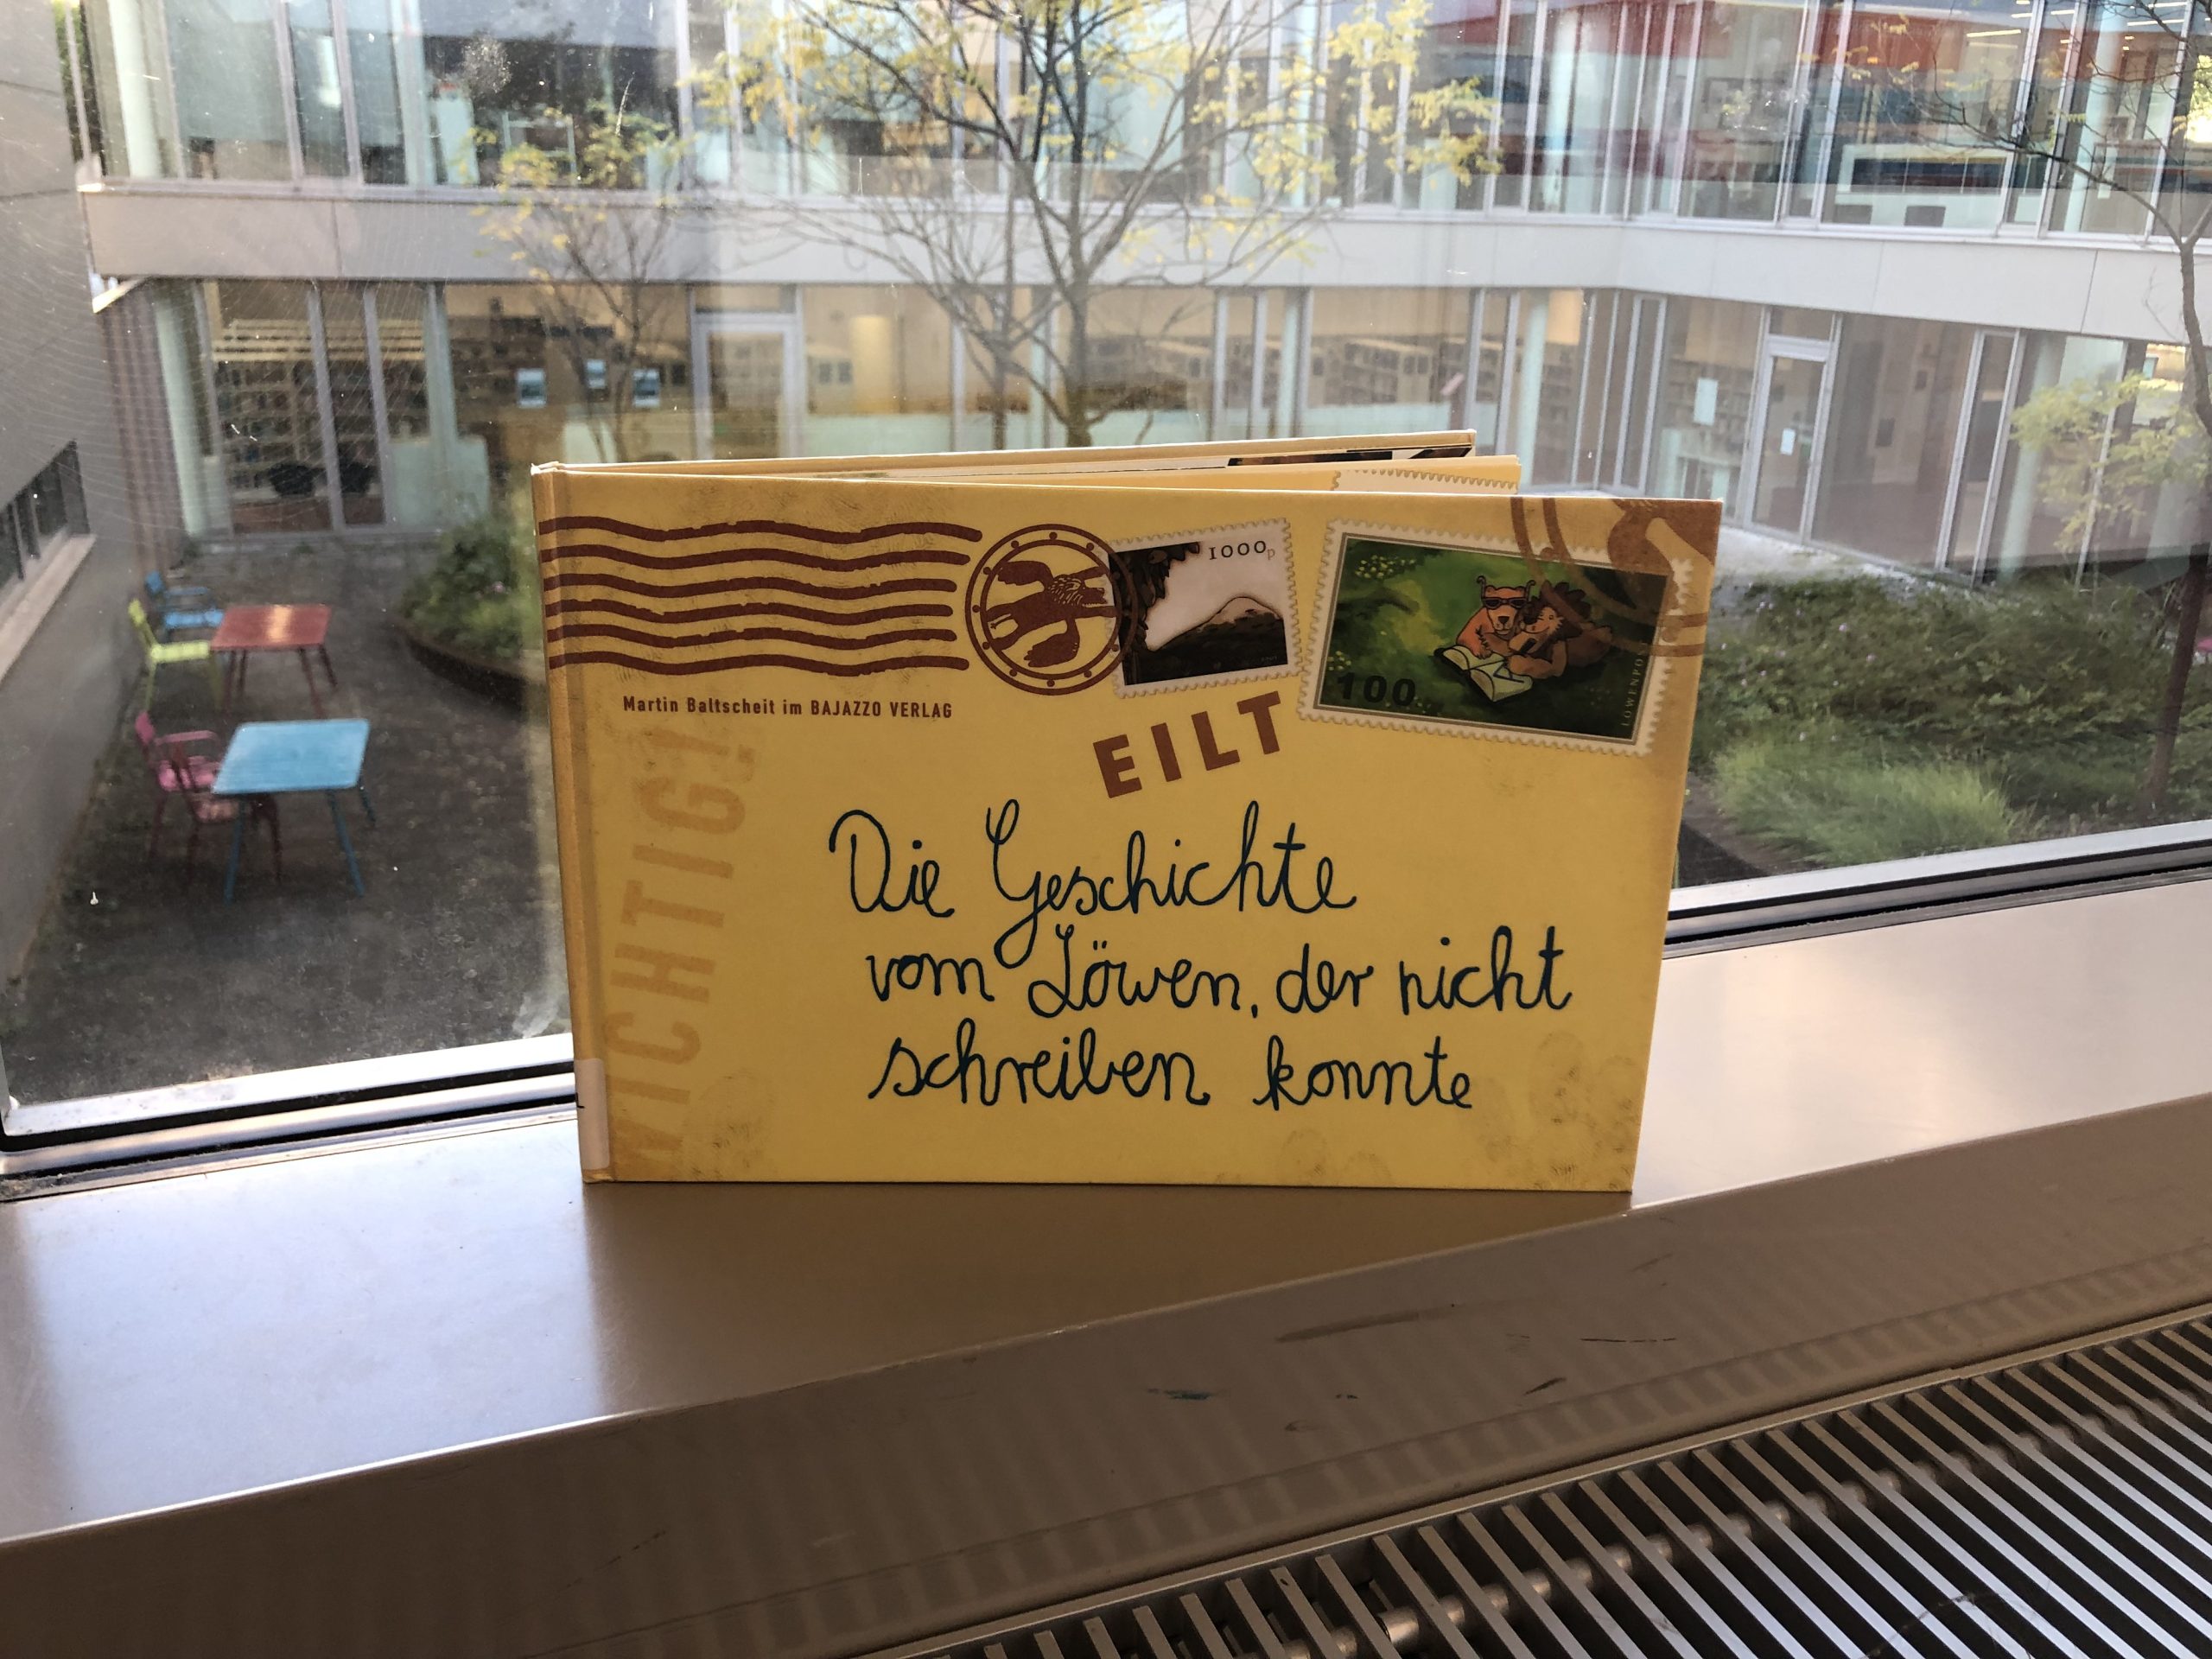 1000p
100
LÖWENPOST
Martin Baltscheit im BAJAZZO VERLAG
EILT
WICHTIG!
Die Geschichte
vom Löwen, der nicht
schreiben konnte